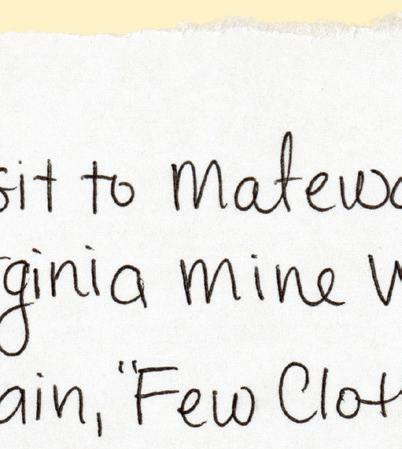 sit to Matewa
ginia mine W
ain, "Few Clot